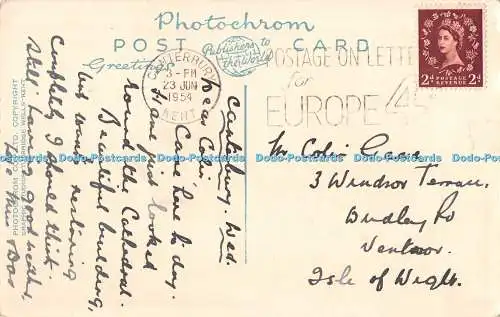 Photochrom
POST CARD
Publishers to
the World
Greetings
CANTERBURY
3 - PM
23 JUN
1954
KENT
POSTAGE ON LETTERS
for
EUROPE 4D
2d POSTAGE REVENUE 2d
Canterbury. Wed.
Dear Colin.
Came here to day
& have just looked
round the Cathedral.
Beautiful building,
but wants restoring
completely I should think.
Still having good weather,
Mr Colin
3 Windsor Terrace,
Dudley Rd
Ventnor.
Isle of Wight.
PHOTOCHROM CO. LTD. COPYRIGHT
Dodo-Postcards Dodo-Postcards Dodo-Postcards Dodo-Postcards Dodo-Postcards